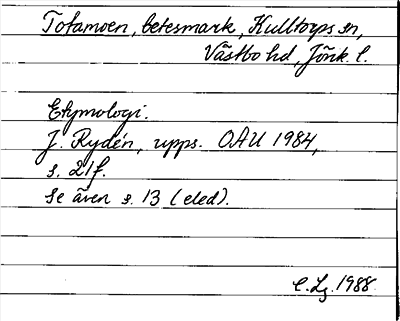 Tofamoen, betesmark, Kulltorps sn,
Västbo hd, Jönk. l.
Etymologi.
J. Rydén, upps. OAU 1984,
s. 21f.
Se även s. 13 (eled).
C. Lg. 1988.